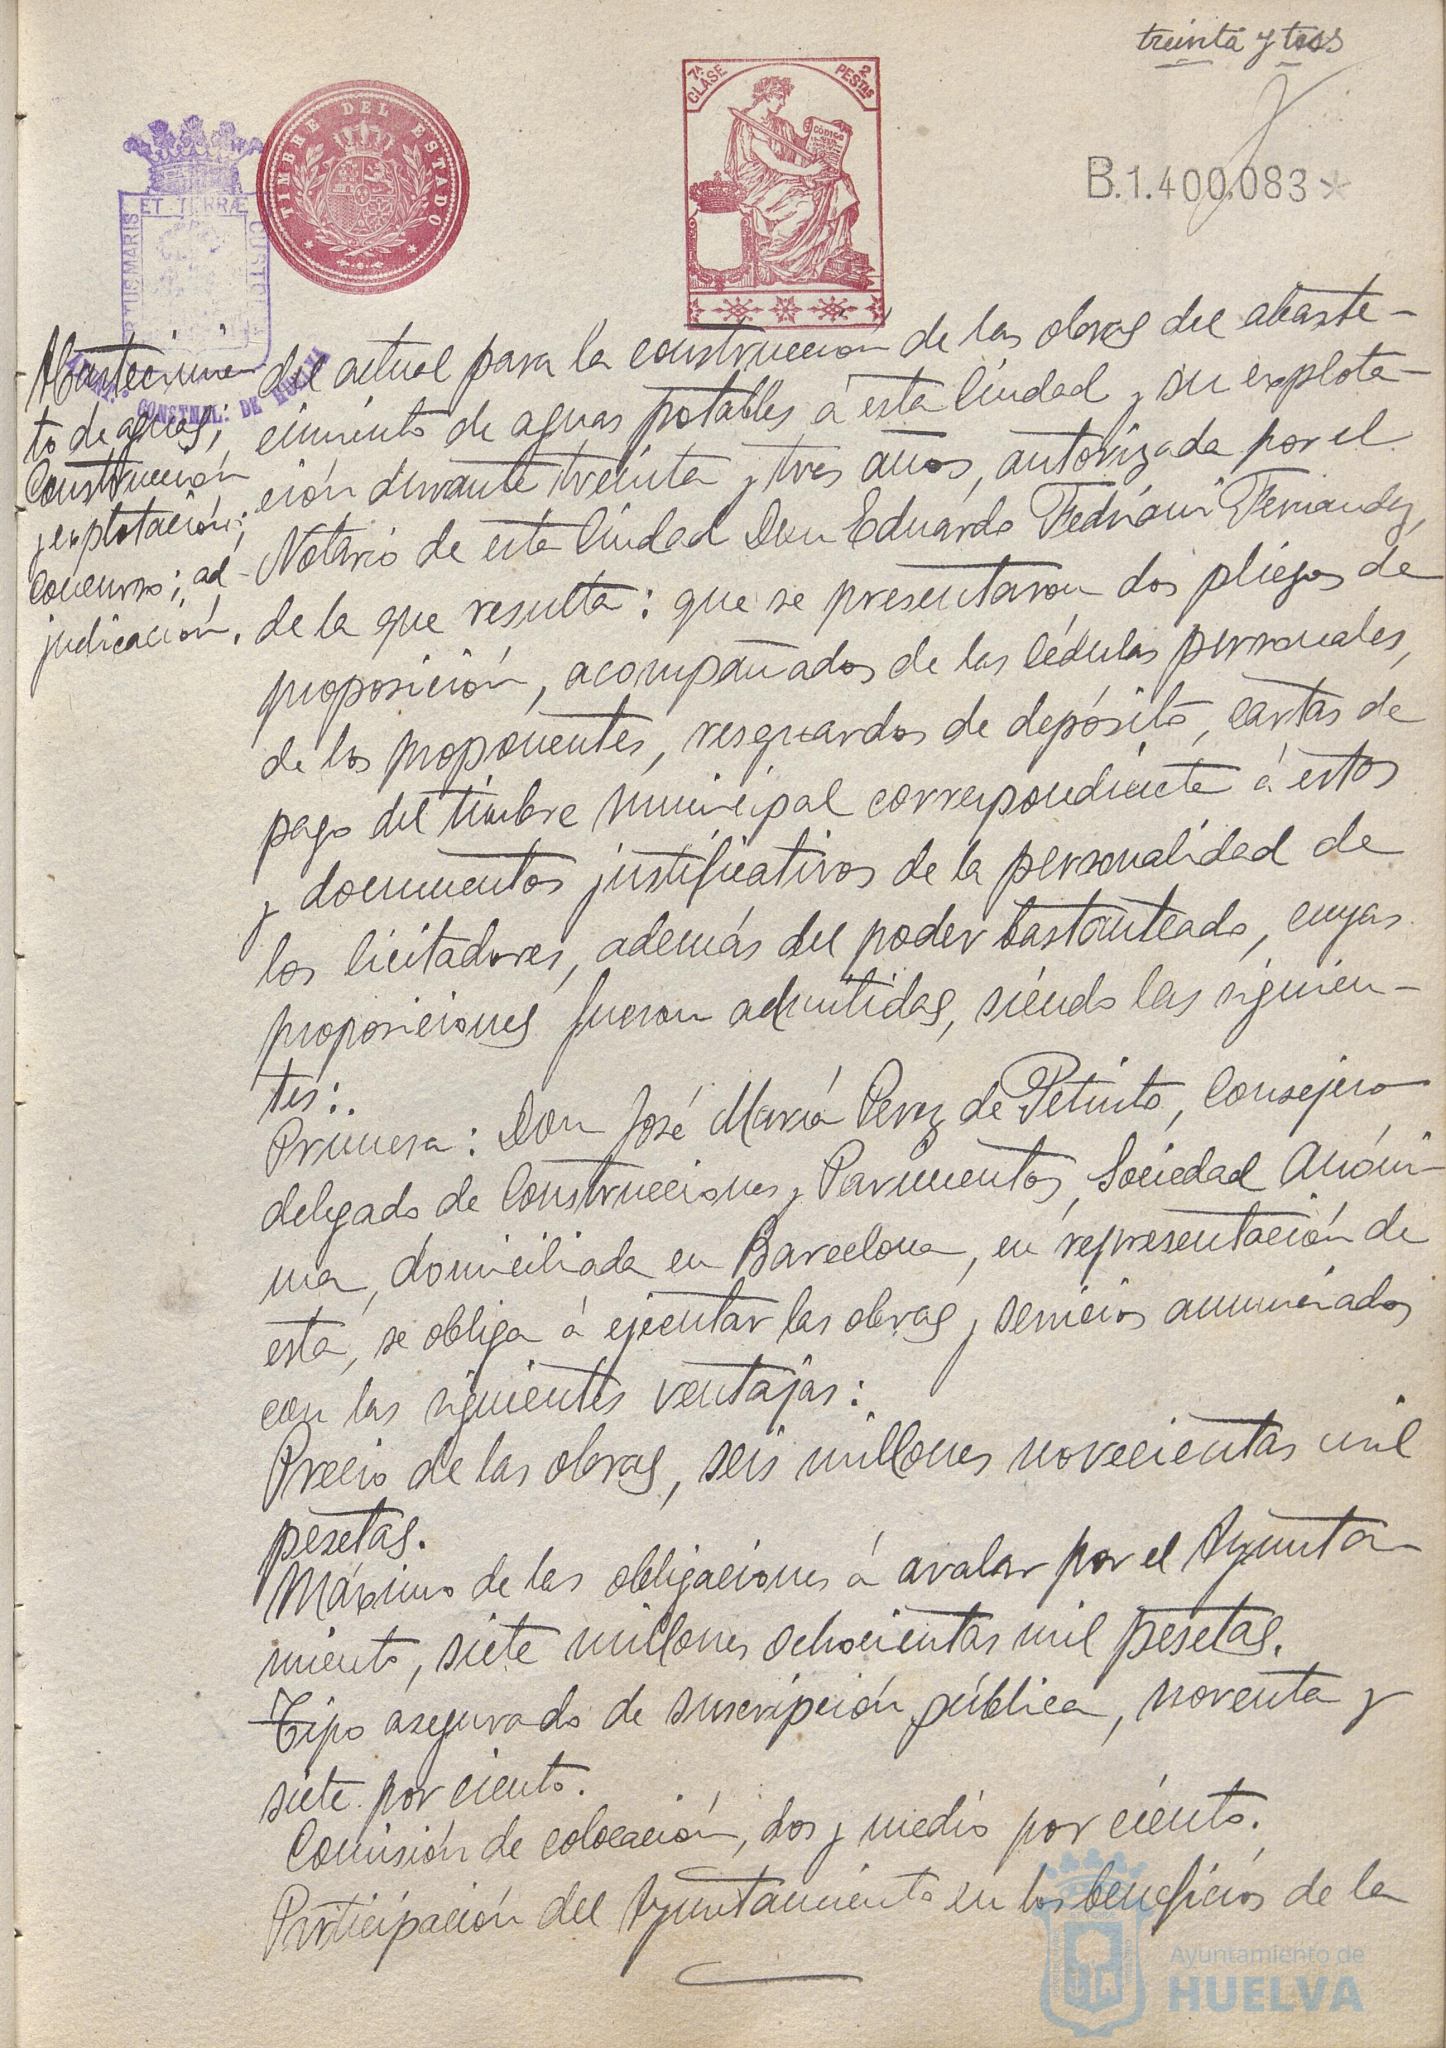 treinta y tres
7ª CLASE
2 PESETAS
CÓDIGO
TIMBRE DEL ESTADO
B.1.400.083*
PORTUS MARIS ET TERRÆ CUSTODIA
AYUNT.º CONSTNAL: DE HUELVA
Abastecimien
to de aguas;
Construcción
y explotación;
Concurso; ad-
judicación.
del actual para la construcción de las obras del abaste-
cimiento de aguas potables á esta Ciudad y su explota-
ción durante treinta y tres años, autorizada por el
Notario de esta Ciudad Don Eduardo Fedriani Fernandez,
de la que resulta: que se presentaron dos pliegos de
proposición, acompañados de las cédulas personales,
de los proponentes, resguardos de depósito, cartas de
pago del timbre municipal correspondiente á estos
y documentos justificativos de la personalidad de
los licitadores, además del poder bastanteado, cuyas
proposiciones fueron admitidas, siendo las siguien-
tes:.
Primera: Don José María Perez de Petinto, Consejero
delegado de Construcciones y Pavimentos, Sociedad Anóni-
ma, domiciliada en Barcelona, en representación de
esta, se obliga á ejecutar las obras y servicios anunciados
con las siguientes ventajas:
Precio de las obras, seis millones novecientas mil
pesetas.
Máximo de las obligaciones á avalar por el Ayunta-
miento, siete millones ochocientas mil pesetas.
Tipo asegurado de suscripción pública, noventa y
siete por ciento.
Comisión de colocación, dos y medio por ciento.
Participación del Ayuntamiento en los beneficios de la
Ayuntamiento de
HUELVA